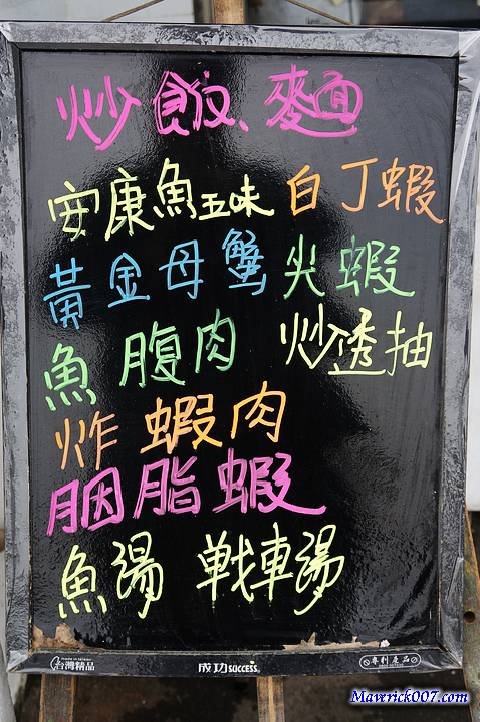 炒飯、麵
安康魚五味 白丁蝦
黃金母蟹 尖蝦
魚腹肉 炒透抽
炸蝦肉
胭脂蝦
魚湯 戦車湯
made in taiwan
台灣精品 成功 SUCCESS. 專利產品
Maverick007.com